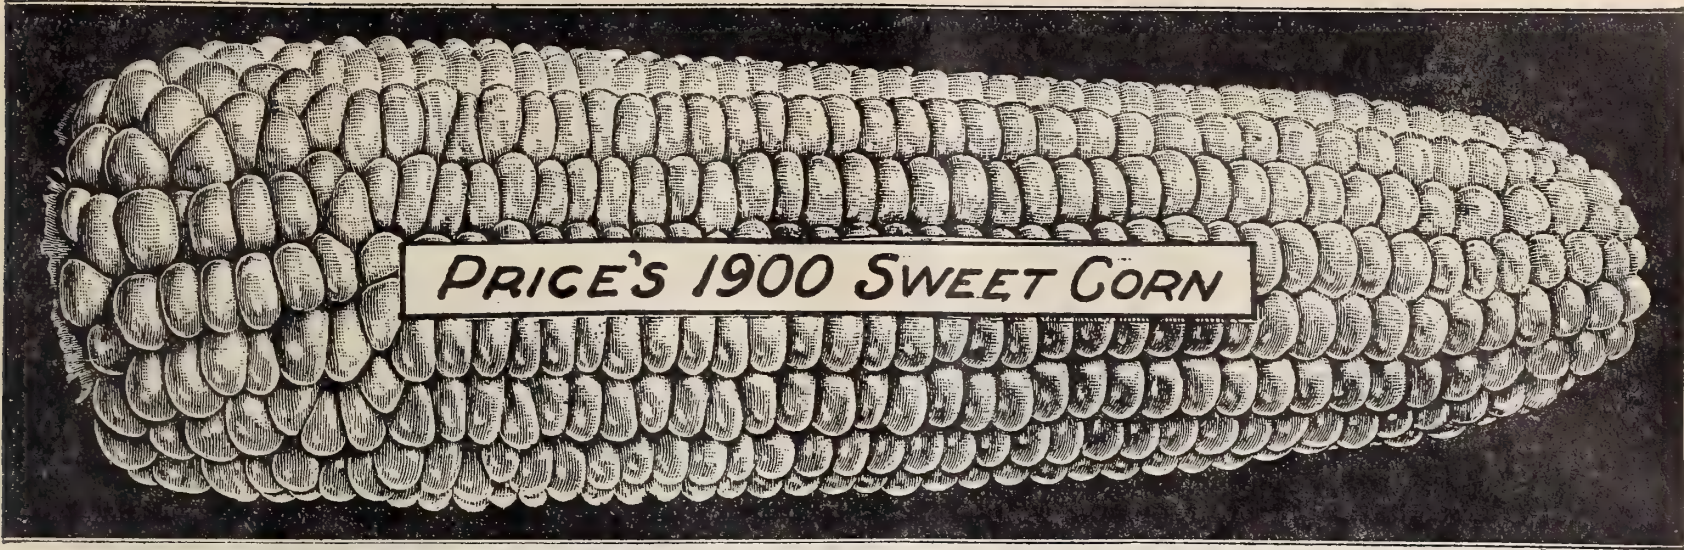 PRICE'S 1900 SWEET CORN